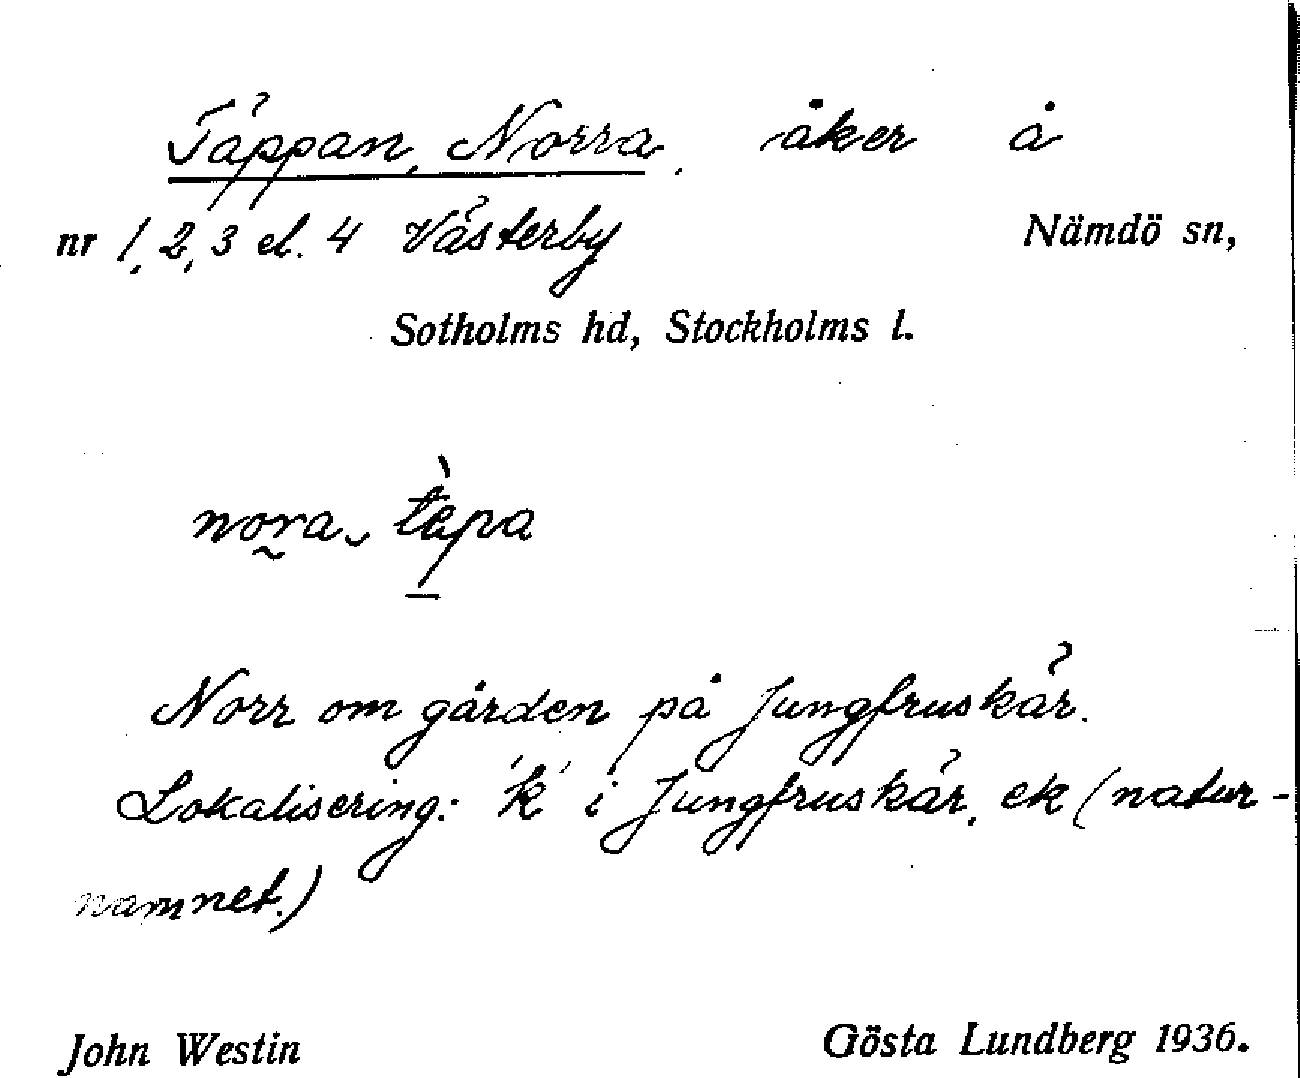 Täppan, Norra, åker å
nr 1, 2, 3 el. 4 Västerby Nämdö sn,
Sotholms hd, Stockholms l.
nora tèpa
Norr om gården på Jungfruskär.
Lokalisering: 'k' i Jungfruskär, ek (natur-
namnet.)
John Westin Gösta Lundberg 1936.